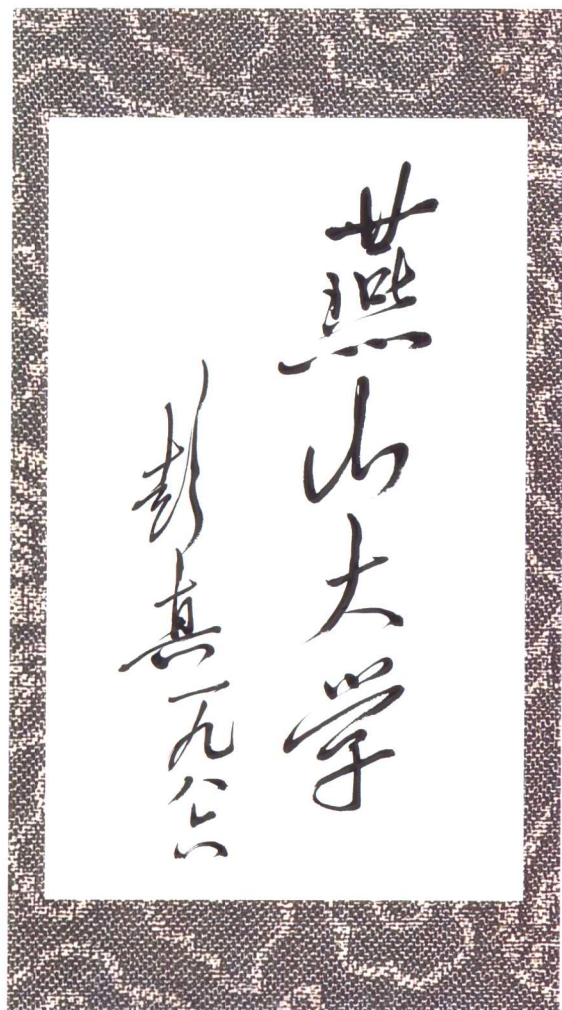 燕山大学
彭真一九八六